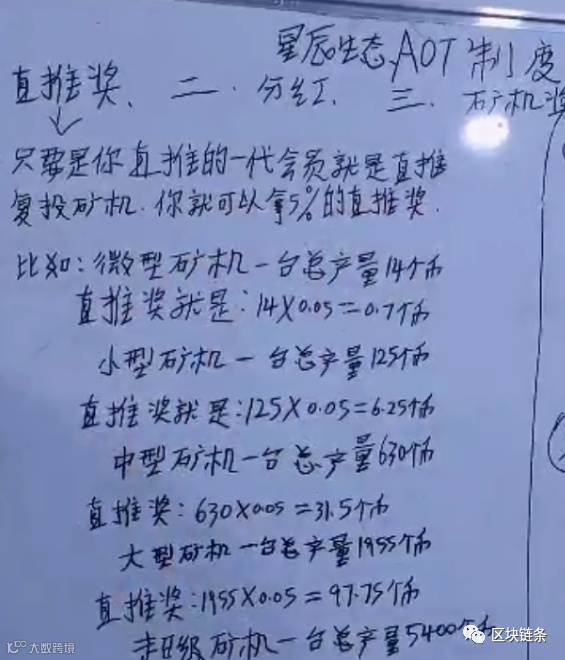 星辰生态AOT制度
直推奖、二.分红.三.矿机奖
只要是你直推的一代会员就是直推
复投矿机.你就可以拿5%的直推奖.
比如:微型矿机一台总产量14个币
直推奖就是:14X0.05=0.7个币
小型矿机一台总产量125个币
直推奖就是:125X0.05=6.25个币
中型矿机一台总产量630个币
直推奖:630X0.05=31.5个币
大型矿机一台总产量1955个币
直推奖:1955X0.05=97.75个币
超级矿机一台总产量5400个币
大数跨境
区块链条